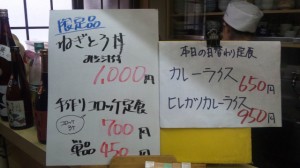 限定品
ねぎとろ丼
みそ汁付
1,000円
手作りコロッケ定食
コロッケ
2ケ
700円
単品 450円
本日の日替わり定食
カレーライス
650円
ヒレカツカレーライス
950円